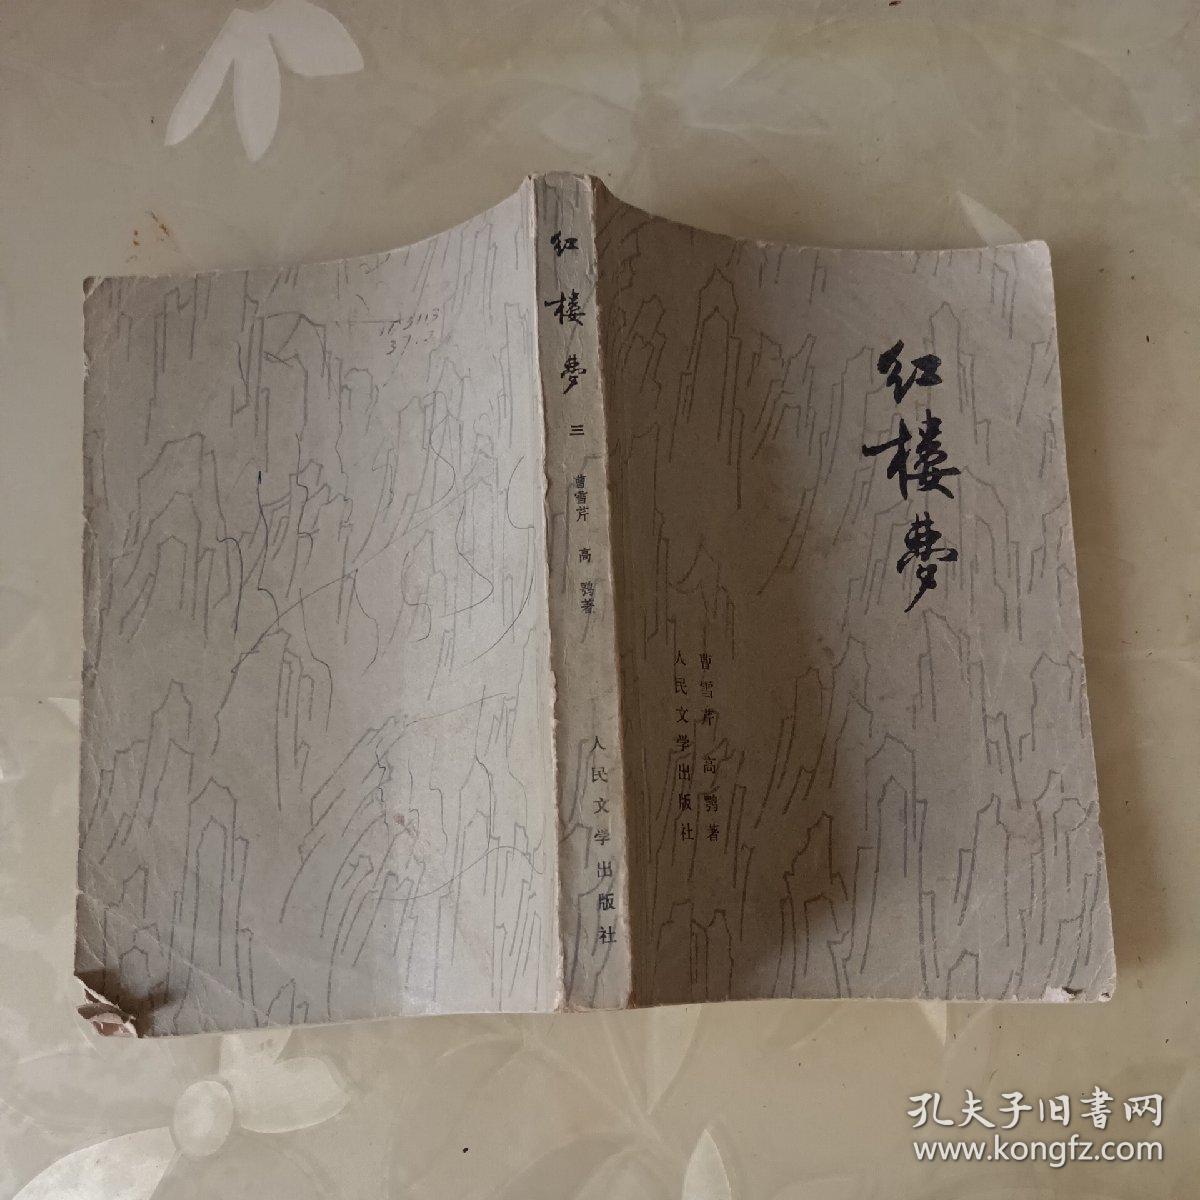 红楼梦
曹雪芹 高鹗著
人民文学出版社
红楼梦
三
曹雪芹 高鹗著
人民文学出版社
孔夫子旧书网
www.kongfz.com